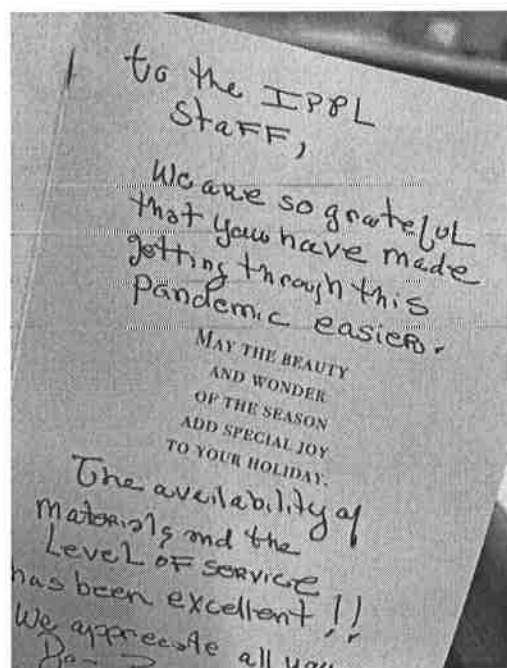 to the IPPL
Staff,
We are so grateful
that you have made
getting through this
pandemic easier.
MAY THE BEAUTY
AND WONDER
OF THE SEASON
ADD SPECIAL JOY
TO YOUR HOLIDAY.
The availability of
materials and the
Level of service
has been excellent!!
We appreciate all you